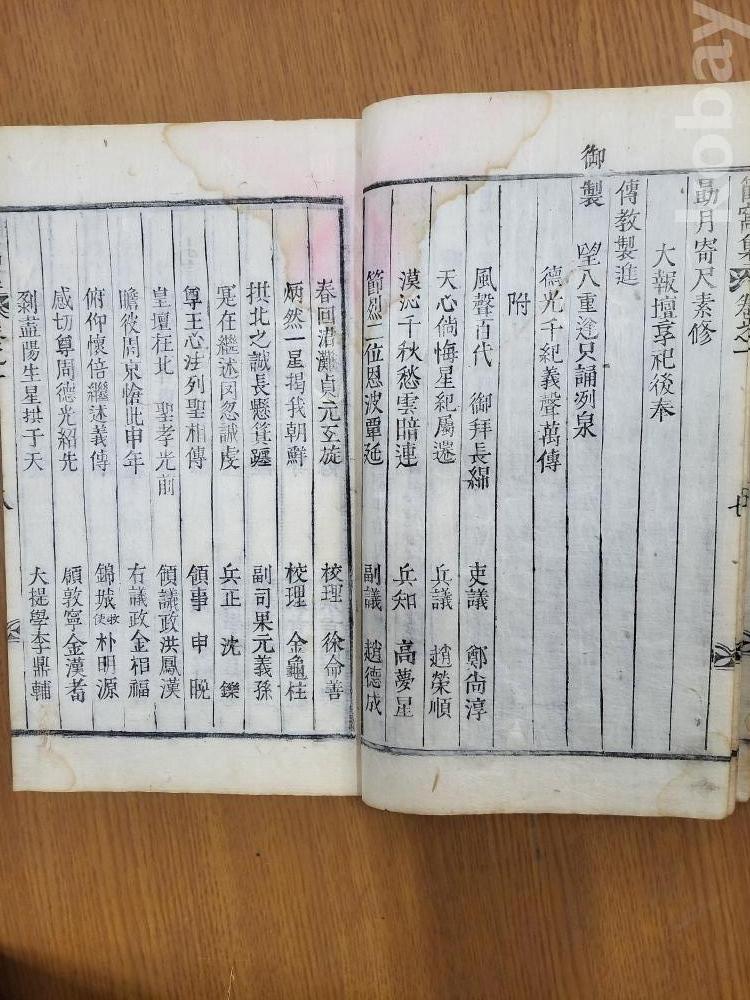 勗月寄尺素修
大報壇享祀後奉
傳敎製進
御
製　望八重逢只誦洌泉
德光千紀義聲萬傳
附
風聲百代　御拜長綿　吏議　鄭尙淳
天心倘悔星紀屬遷　兵議　趙榮順
漠沁千秋愁雲暗連　兵知　高夢星
節烈二位恩波覃延　副議　趙德成
春回涒灘貞元互旋　校理　徐命善
炳然一星揭我朝鮮　校理　金龜柱
拱北之誠長懸箕躔　副司果元義孫
寔在繼述罔忽誠虔　兵正　沈鑠
尊王心法列聖相傳　領事　申晚
皇壇在北　聖孝光前　領議政洪鳳漢
瞻彼周京愴此申年　右議政金相福
俯仰懷倍繼述義傳　錦城尉朴明源
感切尊周德光紹先　領敦寧金漢耉
剝盡陽生星拱于天　大提學李鼎輔
hobay